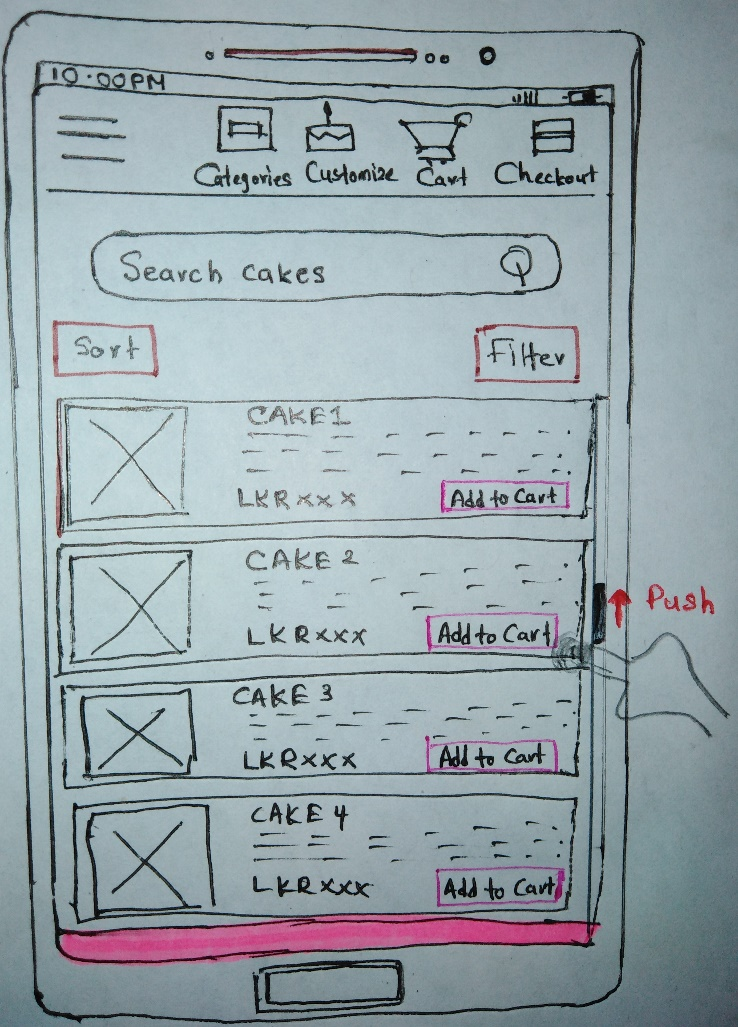 10:00PM
Categories Customize Cart Checkout
Search cakes
Sort Filter
CAKE1
LKRxxx Add to Cart
CAKE 2
LKRxxx Add to Cart
Push
CAKE 3
LKRxxx Add to Cart
CAKE 4
LKRxxx Add to Cart